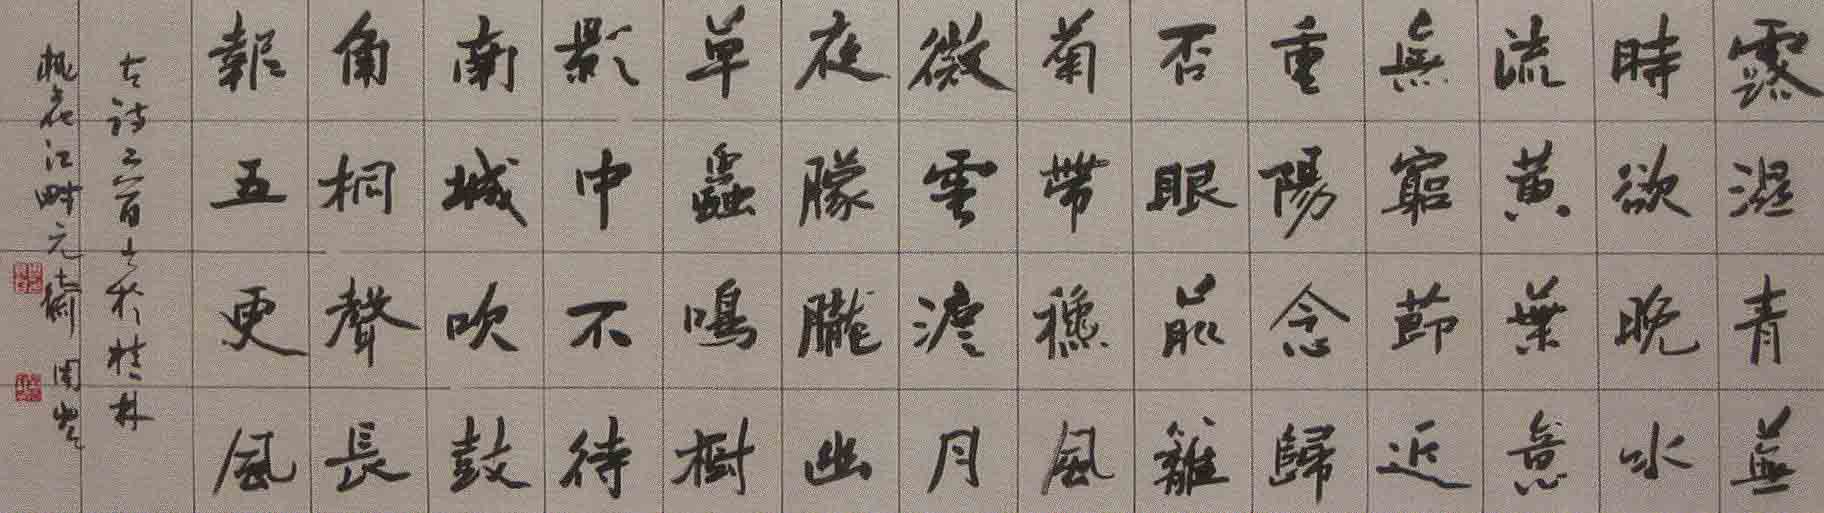 露濕青蕪
時欲晚水
流黃葉意
無窮節近
重陽念歸
否眼前籬
菊帶穐風
微雲澹月
夜朦朧幽
草蟲鳴樹
影中不待
南城吹鼓
角桐聲長
報五更風
古詩二首書於桂林
桃花江畔元 周